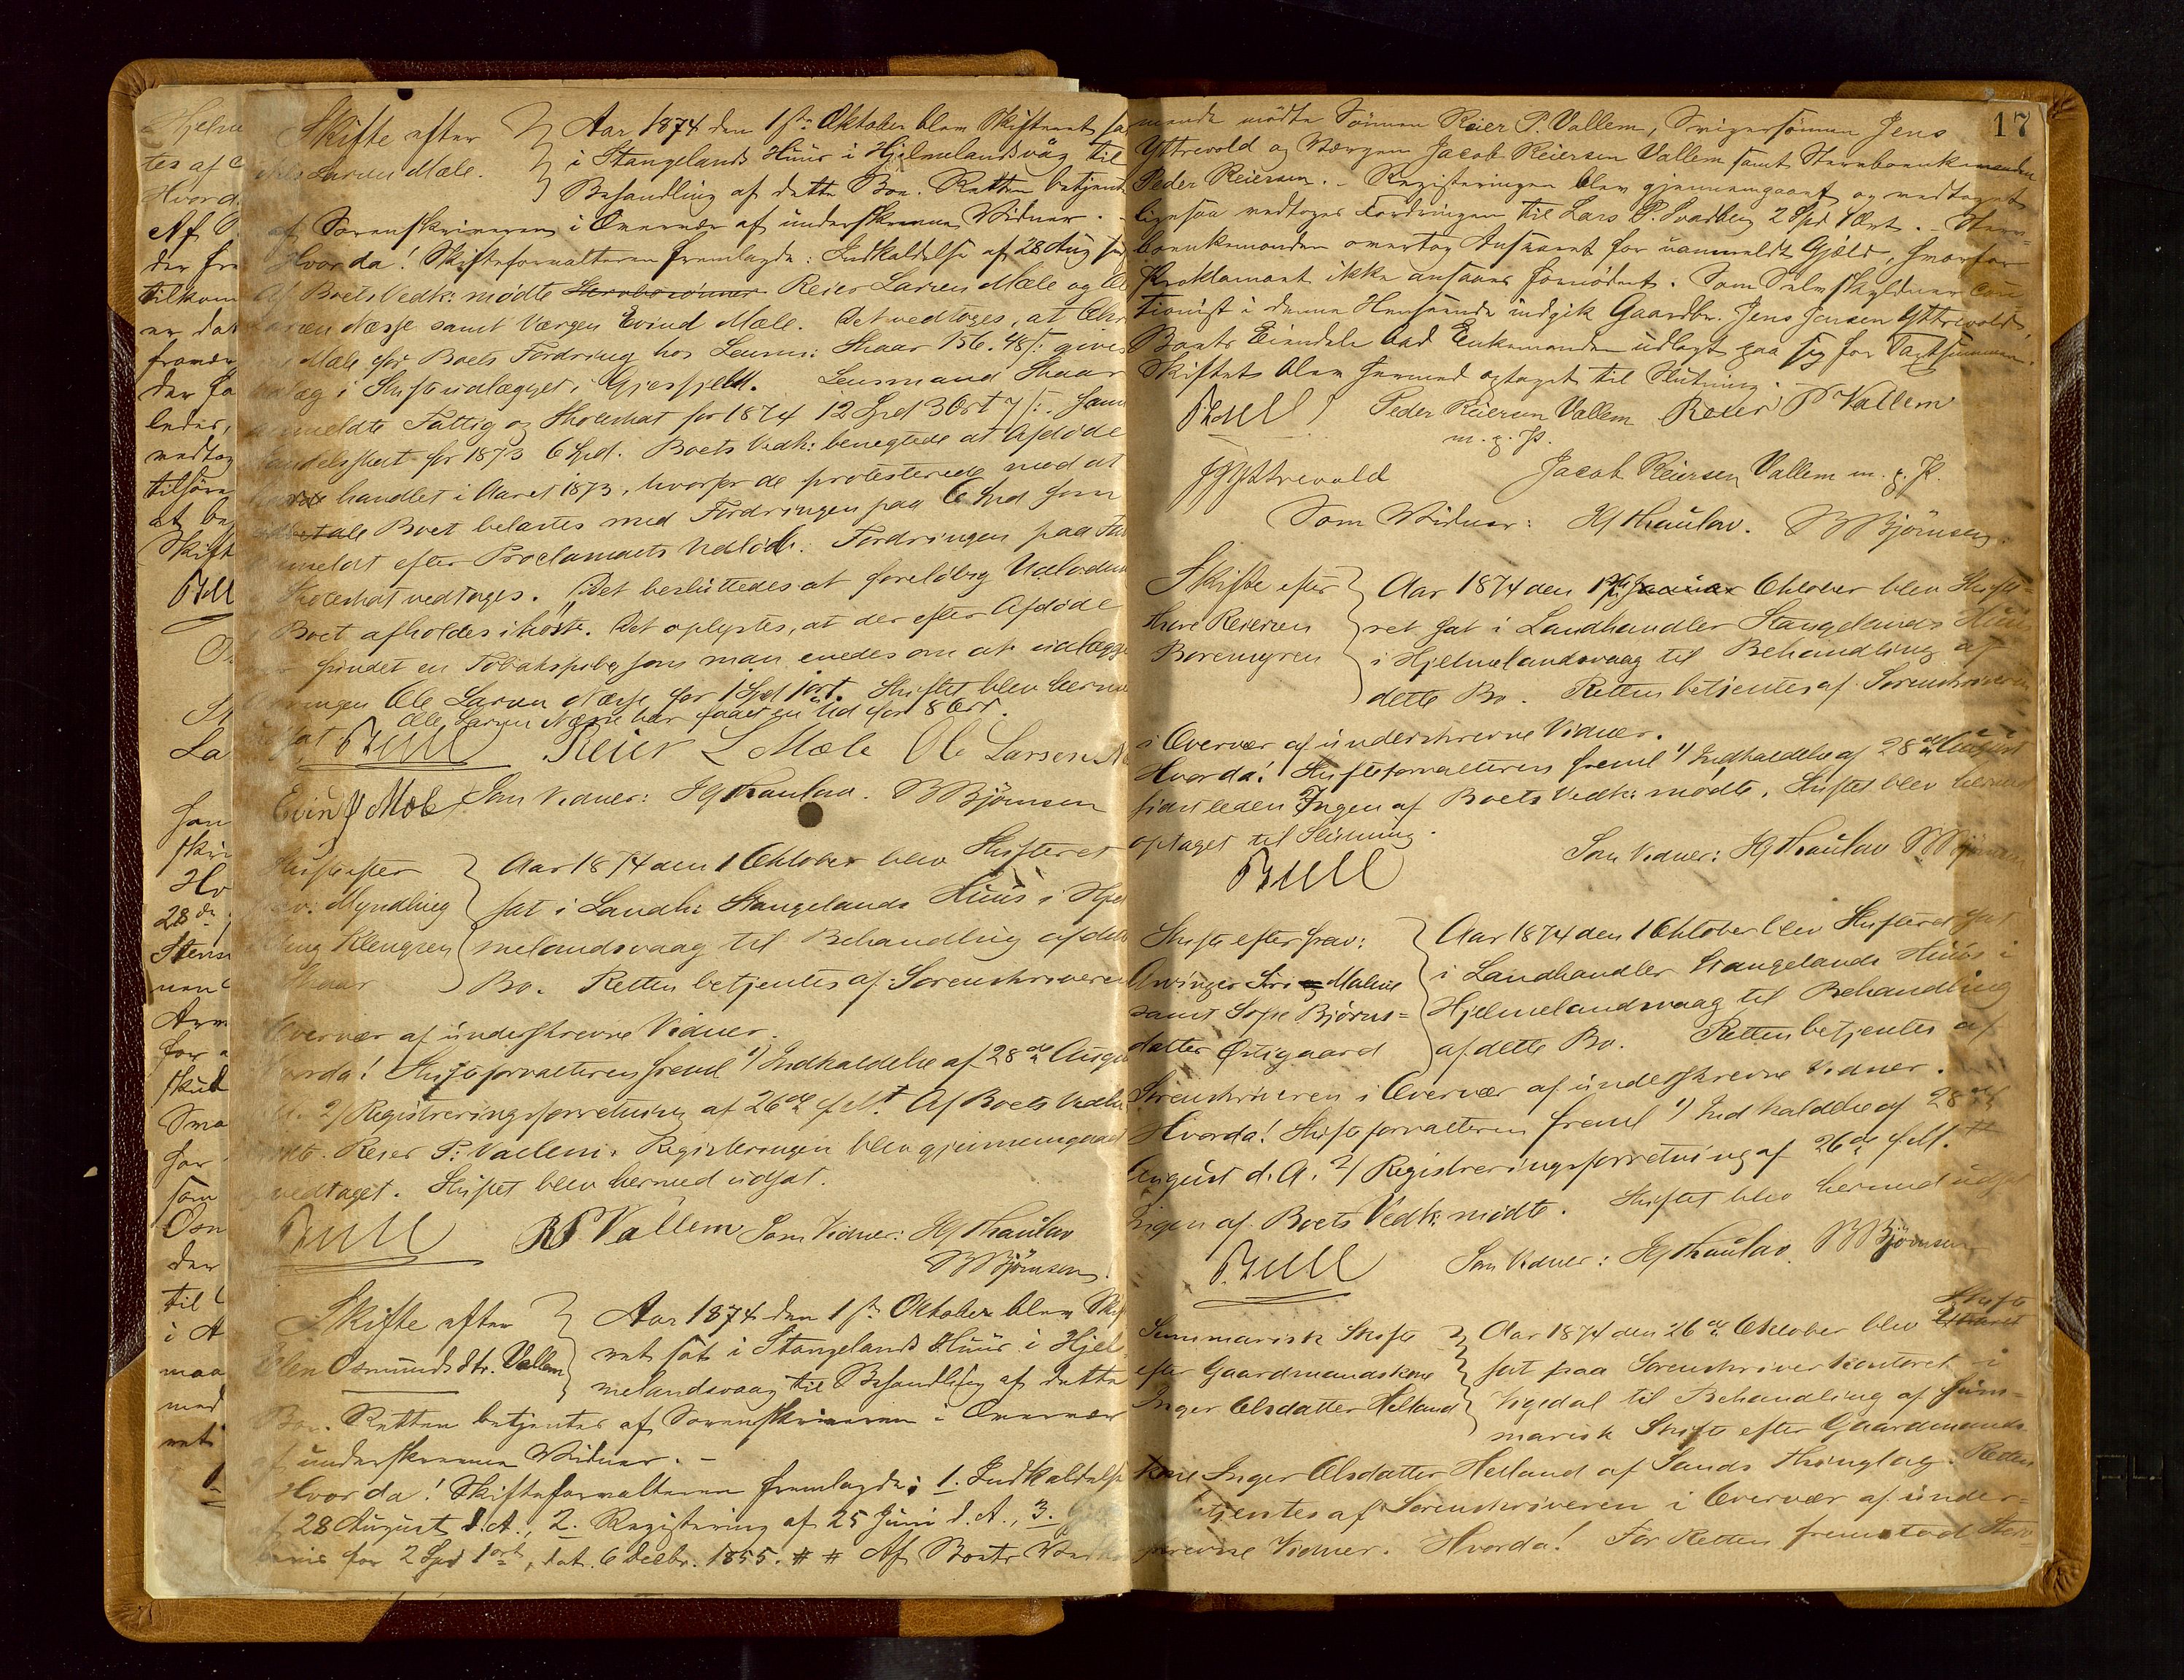 Skifte efter
Larsen Mæle.
Aar 1874 den 1ste Oktober blev Skifteret
i Stangelands Huus i Hjelmelandsvåg til
Behandling af dette Boe. Retten betjent
af Sorenskriveren i Overvær af underskrevne Vidner.
Hvorda! Skifteforvalteren fremlagde: Indkaldelse af 28 Aug
Af Boets Vedk: mødte Reier Larsen Mæle og
Larsen Næsse samt Værgen Evind Mæle. Det vedtoges, at
Mæle for Boets Fordring hos Lensm: Skaar 156. 48 ß: gives
Udlæg i Skifteudlægget i Gjesfjeld. Lensmand Skaar
anmeldte Fattig og Skoleskat for 1874 12 Spd 3 Ort 7 ß:. samt
Handelsskat for 1873 6 Spd. Boets Vedk: benegtede at Afdøde
havde handlet i Aaret 1873, hvorfor de protesterede mod at
Boet belastes med Fordringen paa 6 Spd som
anmeldt efter Proclamaets Udløb. Fordringen paa
Skoleskat vedtoges. Det besluttedes at foreløbig Udlodn
i Boet afholdes i høst. Det oplystes, at der efter Afdøde
findet en Tobakspibe, som man enedes om at udlægge
Ole Larsen Næsse for 1 Spd 1 ort. Skiftet blev herm
Ole Larsen Næsse har faaet en Ud for 8 Ort.
Bull Reier L Mæle Ole Larsen
Evind Mæle Som Vidner: HJ Thaulow. B Bjørnsen
Skifte efter
frav: Myndling
Klengsen
Skaar
Aar 1874 den 1 Oktober blev Skifteret
sat i Landh: Stangelands Huus i Hjel
melandsvaag til Behandling af dette
Bo. Retten betjentes af Sorenskriveren
Overvær af underskrevne Vidner.
Hvorda! Skifteforvalteren freml 1) Indkaldelse af 28de August
2) Registreringsforretning af 26de f.M. Af Boets Vedk
mødte. Reier P. Vallem. Registreringen blev gjennemgaaet
og vedtaget. Skiftet blev hermed udsat.
Bull RP Vallem Som Vidner: HJ Thaulow
B Bjørnsen.
Skifte efter
Elen Osmundsdtr. Vallem
Aar 1874 den 1ste Oktober blev Skif
ret sat i Stangelands Huus i Hjel
melandsvaag til Behandling af dette
Boe. Retten betjentes af Sorenskriveren i Overvær
af underskrevne Vidner. –
Hvorda! Skifteforvalteren fremlagde: 1. Indkaldelse
af 28 August d. A., 2. Registrering af 25 Juni d. A., 3.
for 2 Spd 1 ort, dat. 6 Decbr. 1855. # # Af Boets Vedk
17
mødte Sønnen Reier P. Vallem, Svigersønnen Jens
Yttrevold og Værgen Jacob Reiersen Vallem samt Stervboenkemanden
Peder Reiersen. – Registreringen blev gjennemgaaet og vedtaget
ligesaa vedtoges Fordringen til Lars P. Svadberg 2 Spd 1 Ort. – Sterv=
boenkemanden overtog Ansvaret for uanmeldt Gjæld, hvorfor
Proklamaet ikke ansaaes fornødent. Som Selvskyldner Cau
tionist i denne Henseende indgik Gaardbr. Jens Jensen Yttrevold.
Boets Eiendele bad Enkemanden udlagt paa sig for Taxtsummen.
Skiftet blev hermed optaget til Slutning.
Bull Peder Reiersen Vallem Reier P Vallem
m. p. P.
JJ Yttrevold Jacob Reiersen Vallem m. p. P.
Som Vidner: HJ Thaulow. B Bjørnsen.
Skifte efter
Thore Reiersen
Boremyren
Aar 1874 den 1ste Oktober blev Skifte=
ret sat i Landhandler Stangelands Huus
i Hjelmelandsvaag til Behandling af
dette Bo. Retten betjentes af Sorenskriveren
i Overvær af underskrevne Vidner.
Hvorda! Skifteforvalteren freml 1) Indkaldelse af 28de August
sidstleden Ingen af Boets Vedk: mødte. Skiftet blev hermed
optaget til Slutning.
Bull
Som Vidner: HJ Thaulow B Bjørnsen
Skifte efter frav:
Arvinger Siri Maline
samt Sofie Bjørns=
datter Østigaard
Aar 1874 den 1 Oktober blev Skifteret sat
i Landhandler Stangelands Huus i
Hjelmelandsvaag til Behandling
af dette Bo. Retten betjentes af
Sorenskriveren i Overvær af underskrevne Vidner.
Hvorda! Skifteforvalteren freml 1) Indkaldelse af 28de
August d. A. 2) Registreringsforretning af 26de f.M.
Ingen af Boets Vedk: mødte. Skiftet blev hermed udsat
Bull Som Vidner: HJ Thaulow B Bjørnsen
Summarisk Skifte
efter Gaardmandskone
Inger Olsdatter Helland
Aar 1874 den 26de Oktober blev Skifte
sat paa Sorenskriverkontoret i
Vigedal til Behandling af sum=
marisk Skifte efter Gaardmands
kone Inger Olsdatter Helland af Sands Thinglag. Retten
betjentes af Sorenskriveren i Overvær af under=
skrevne Vidner. Hvorda! For Retten fremstod Sterv=